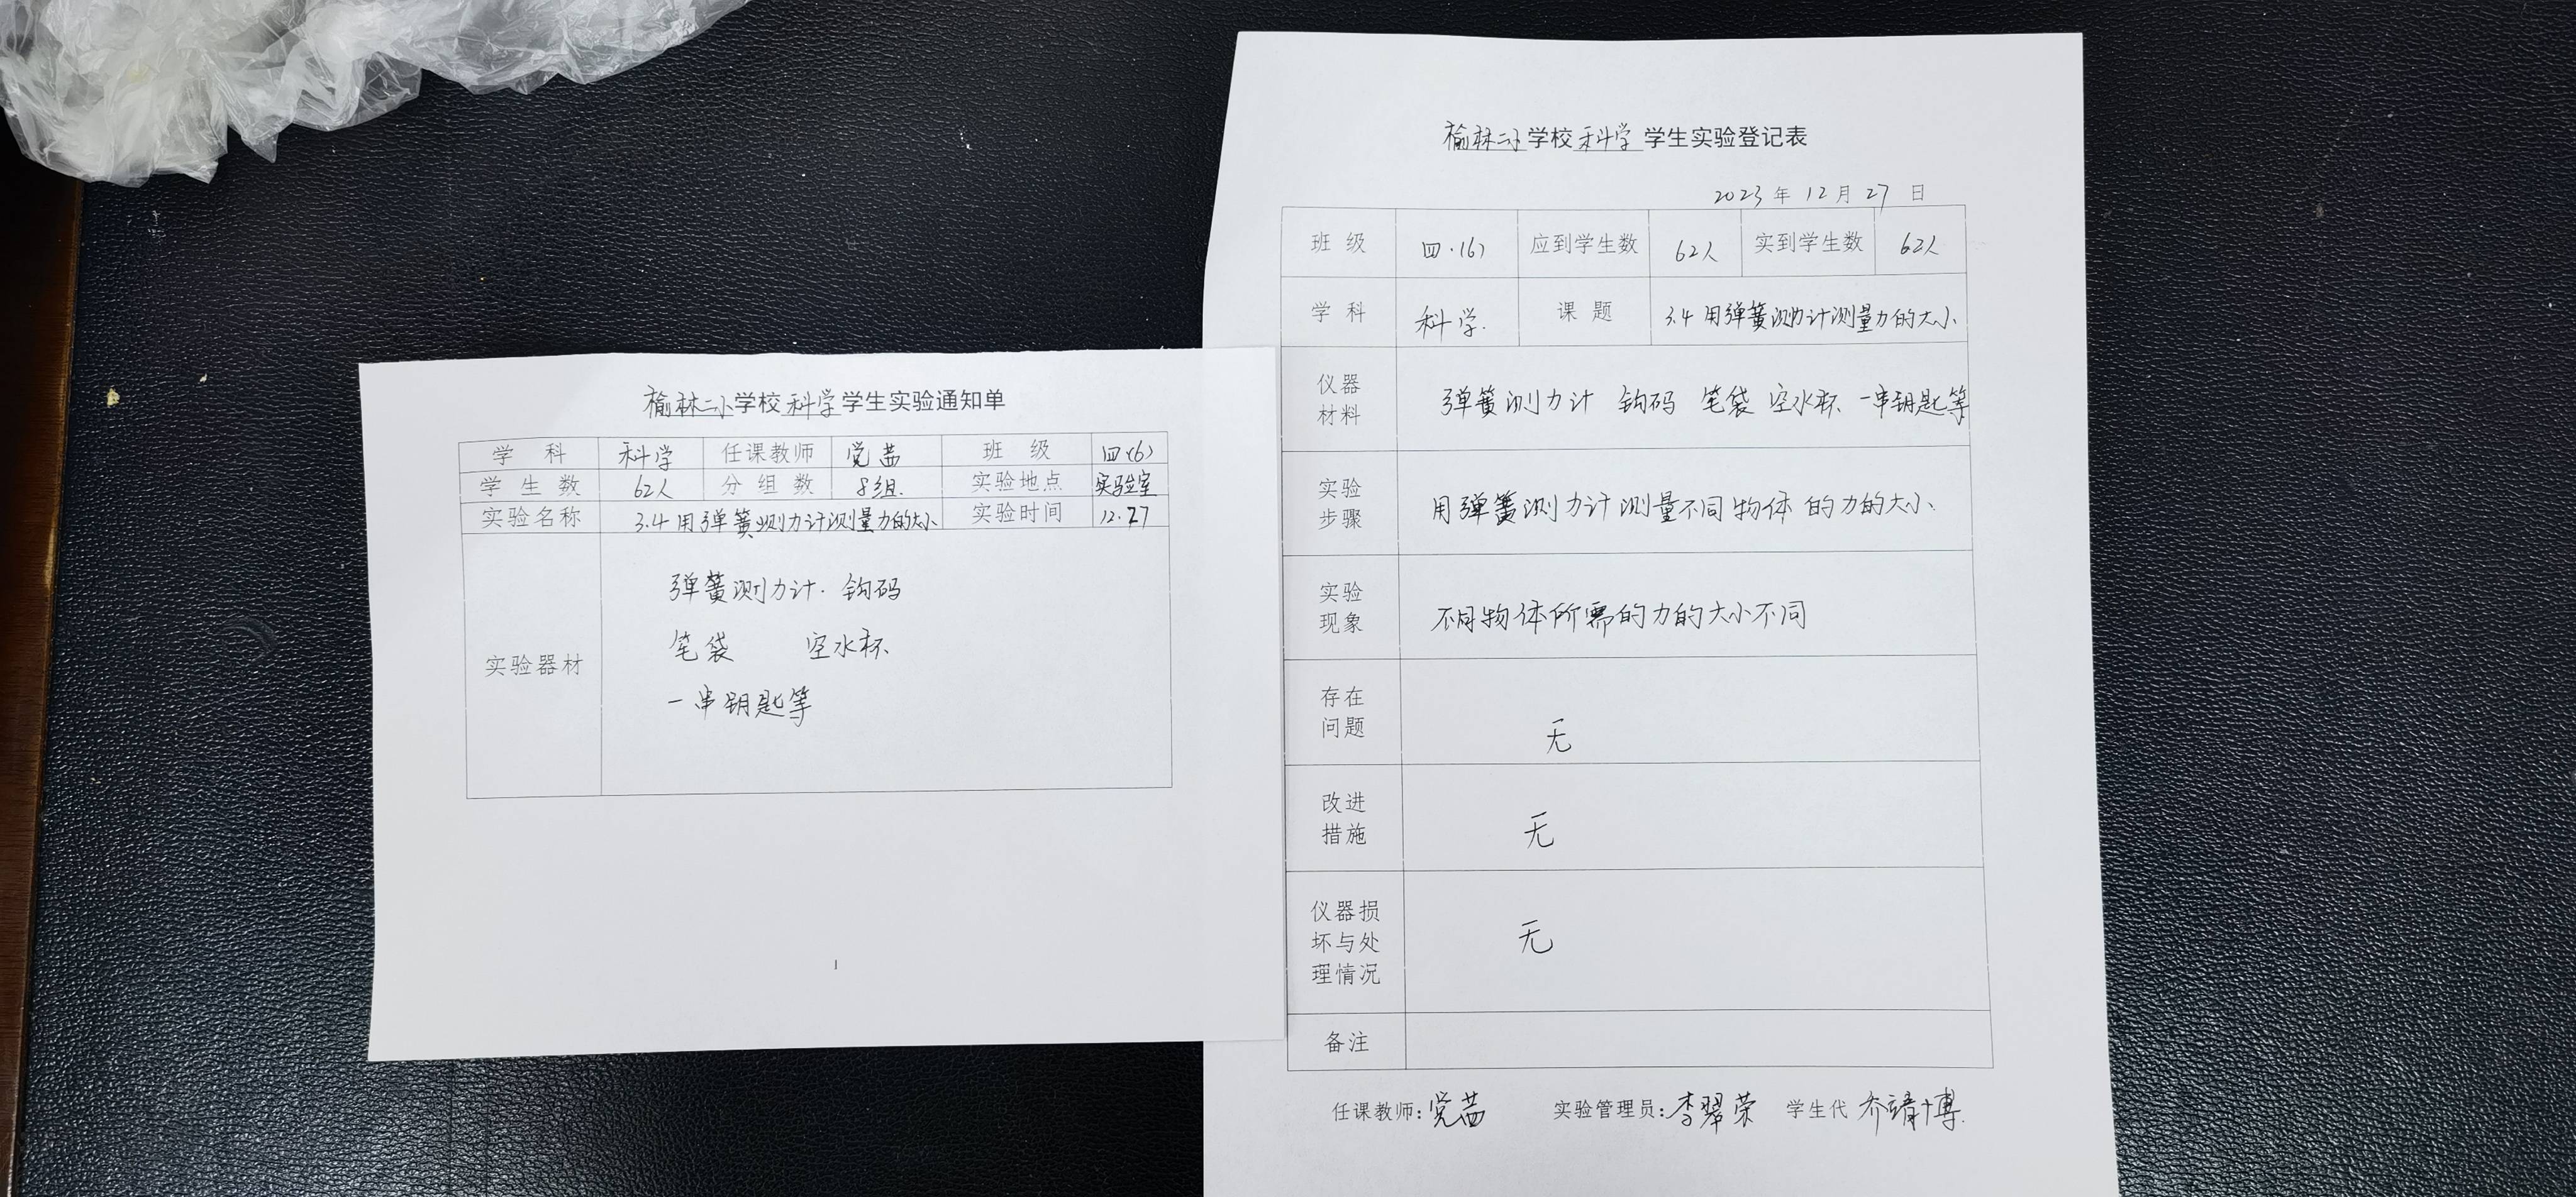 榆林二小学校科学学生实验通知单
学 科 科学 任课教师 党茜 班 级 四(6)
学 生 数 62人 分 组 数 8组. 实验地点 实验室
实验名称 3.4 用弹簧测力计测量力的大小 实验时间 12.27
实验器材
弹簧测力计. 钩码
笔袋 空水杯
一串钥匙等
1
榆林二小学校科学学生实验登记表
2023年12月27日
班 级 四.(6) 应到学生数 62人 实到学生数 62人
学 科 科学. 课 题 3.4 用弹簧测力计测量力的大小
仪器
材料
弹簧测力计 钩码 笔袋 空水杯 一串钥匙等
实验
步骤
用弹簧测力计测量不同物体的力的大小
实验
现象
不同物体所需的力的大小不同
存在
问题
无
改进
措施
无
仪器损
坏与处
理情况
无
备注
任课教师:党茜 实验管理员:李翠荣 学生代 乔靖博.